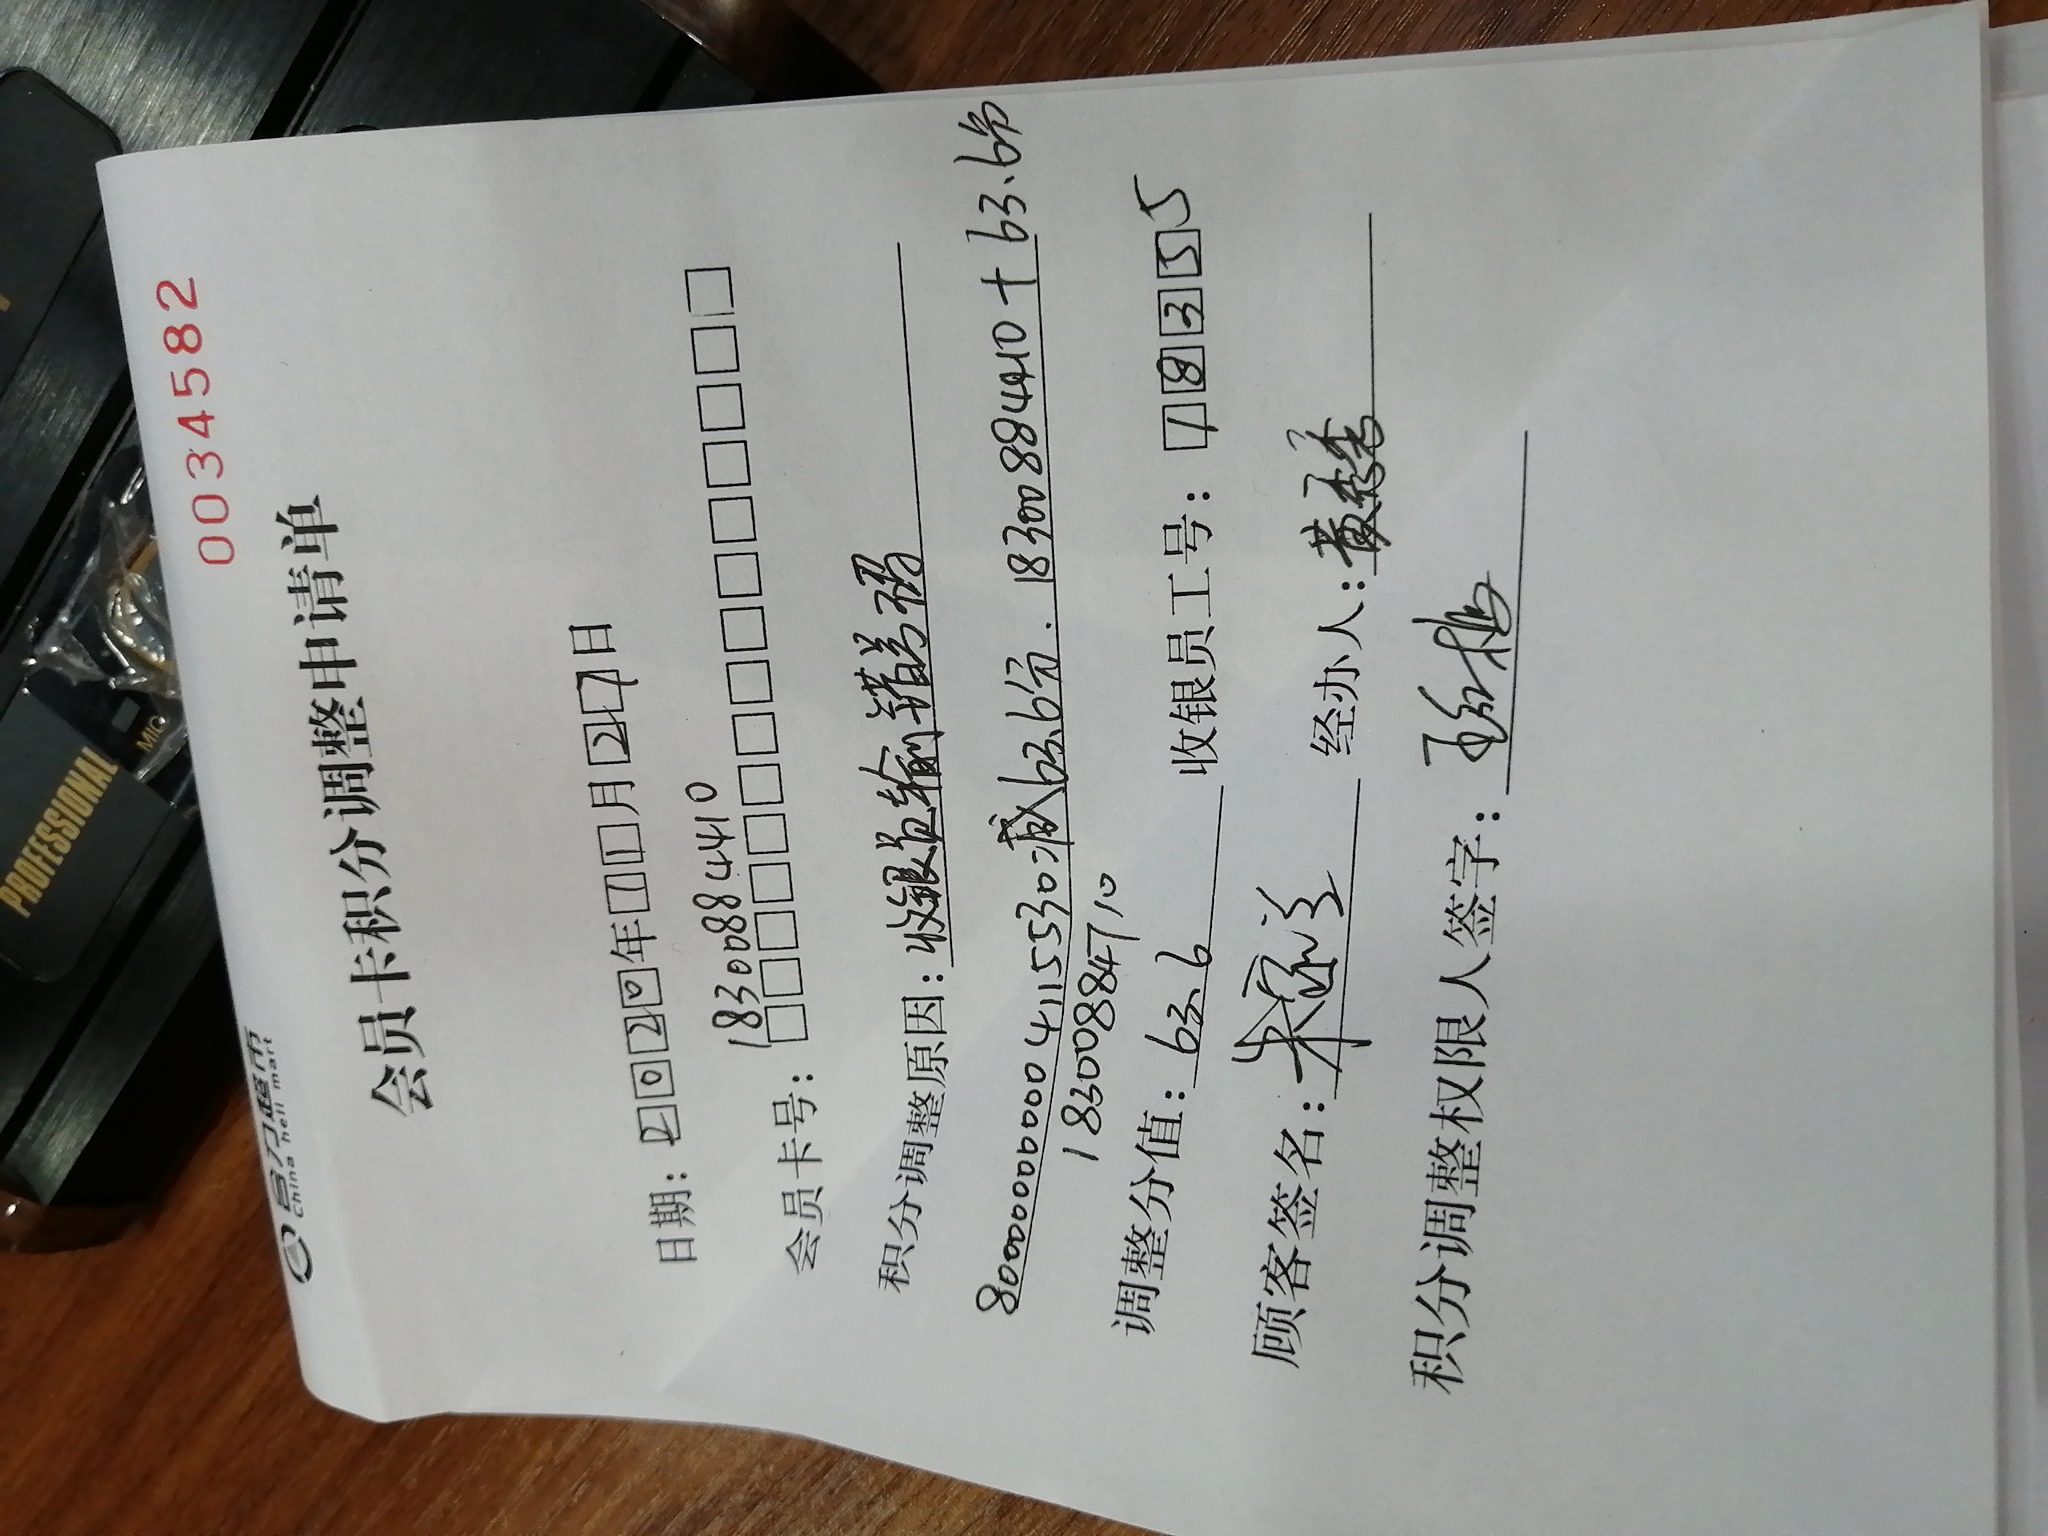 合力超市
china heli mart
0034582
会员卡积分调整申请单
日期：2020年11月27日
会员卡号：18300884410
积分调整原因：收银员输错号码
8000000000004115530减63.6分.18300884410+63.6分
18300884710
调整分值：63.6 收银员工号：18355
顾客签名： 经办人：黄
积分调整权限人签字：
PROFESSIONAL
MIC